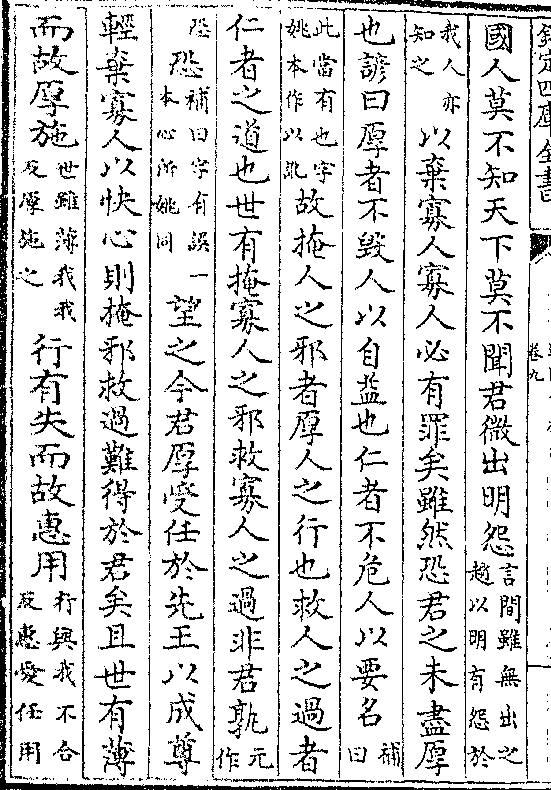 欽定四庫全書
卷九
國人莫不知天下莫不聞君微出明怨言間雖無出之趙以明有怨於
我人亦知之以棄寡人寡人必有罪矣雖然恐君之未盡厚
也諺曰厚者不毀人以自益也仁者不危人以要名補曰
此當有也字姚本作以訛故掩人之邪者厚人之行也救人之過者
仁者之道也世有掩寡人之邪救寡人之過非君孰元作
恐恐補曰字有誤一本心所姚同望之今君厚受任於先王以成尊
輕棄寡人以快心則掩邪救過難得於君矣且世有薄
而故厚施世雖薄我我反厚施之行有失而故惠用行與我不合反惠愛任用